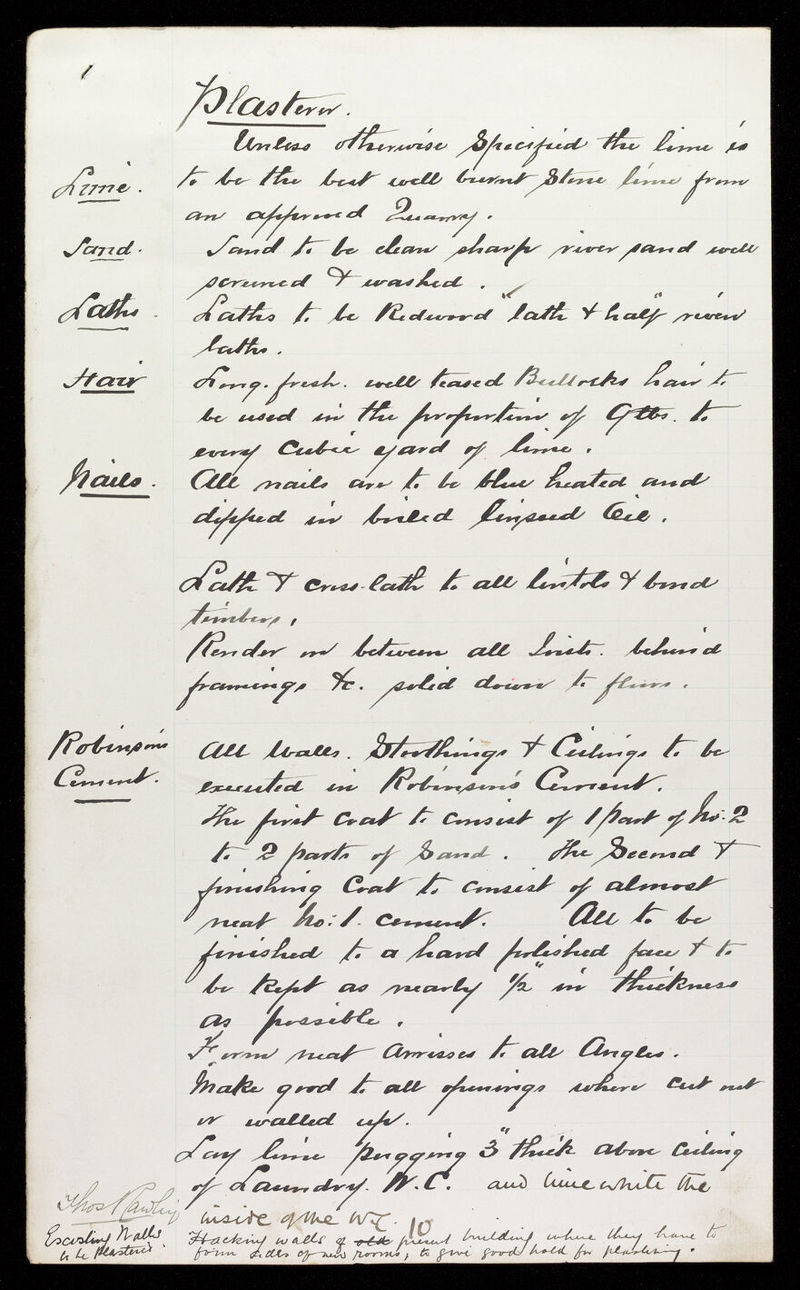 1
Plasterer.
Unless otherwise Specified the lime is
Lime. to be the best well burnt Stone lime from
an approved Quarry.
Sand. Sand to be clean sharp river sand well
screened & washed.
Laths. Laths to be Redwood "lath & half" riven
laths.
Hair Long. fresh. well teased Bullocks hair to
be used in the proportion of 9 lbs. to
every Cubic yard of lime.
Nails. All nails are to be blue heated and
dipped in boiled linseed Oil.
Lath & cross-lath to all lintols & bond
timbers,
Render in between all Joists. behind
framings &c. solid down to floors.
Robinson's All Walls. Stoothings & Ceilings to be
Cement. executed in Robinson's Cement.
The first coat to consist of 1 part of No: 2
to 2 parts of Sand. The Second &
finishing Coat to consist of almost
neat No: 1. cement. All to be
finished to a hard polished face & to
be kept as nearly 1/2" in thickness
as possible.
Form neat Arrisses to all Angles.
Make good to all openings where cut out
or walled up.
Lay lime pugging 3" thick above ceiling
of Laundry. W.C. and lime white the
Thos Rawling inside of the W.C. 10
Existing Walls Hacking walls of old present building where they have to
to be Plastered. form sides of new rooms, to give good hold for plastering.